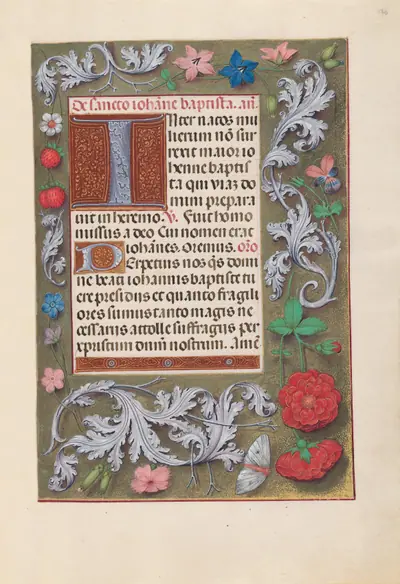 De sancto iohāne baptista. añ.
INter natos mu
lierum nō sur
rexit maior io
hanne baptis
ta qui viaz do
mini prepara
uit in heremo. V. Fuit homo
missus a deo Cui nomen erat
iohānes. Oremus. oro
PErpetuis nos q̄s domi
ne beati iohannis baptiste tu
ere presidiis et quanto fragili
ores sumus tanto magis ne
cessariis attolle suffragiis per
xp̄istum dnm̄ nostrum. Amē